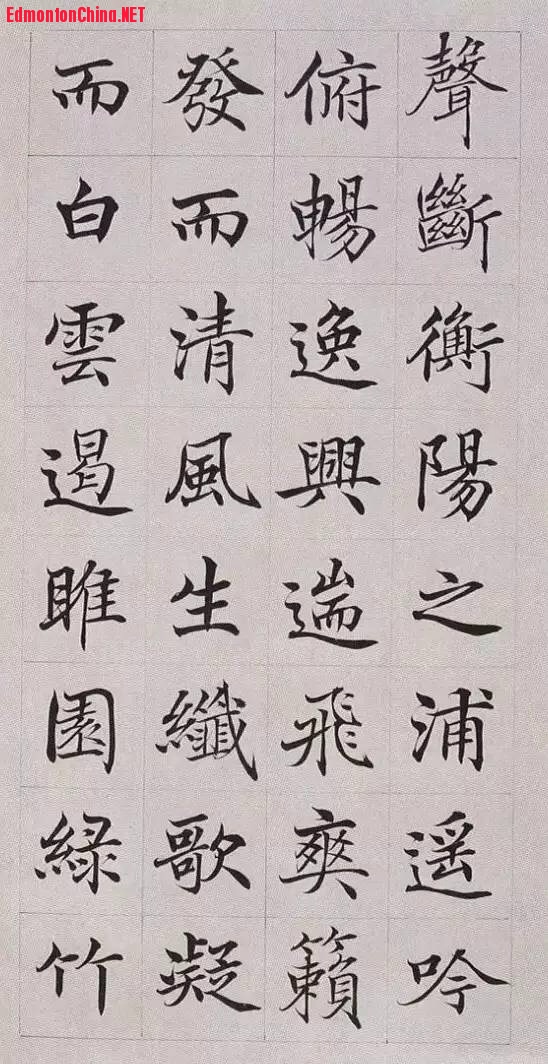 EdmontonChina.NET
聲斷衡陽之浦遥吟
俯暢逸興遄飛爽籟
發而清風生纖歌凝
而白雲遏睢園綠竹